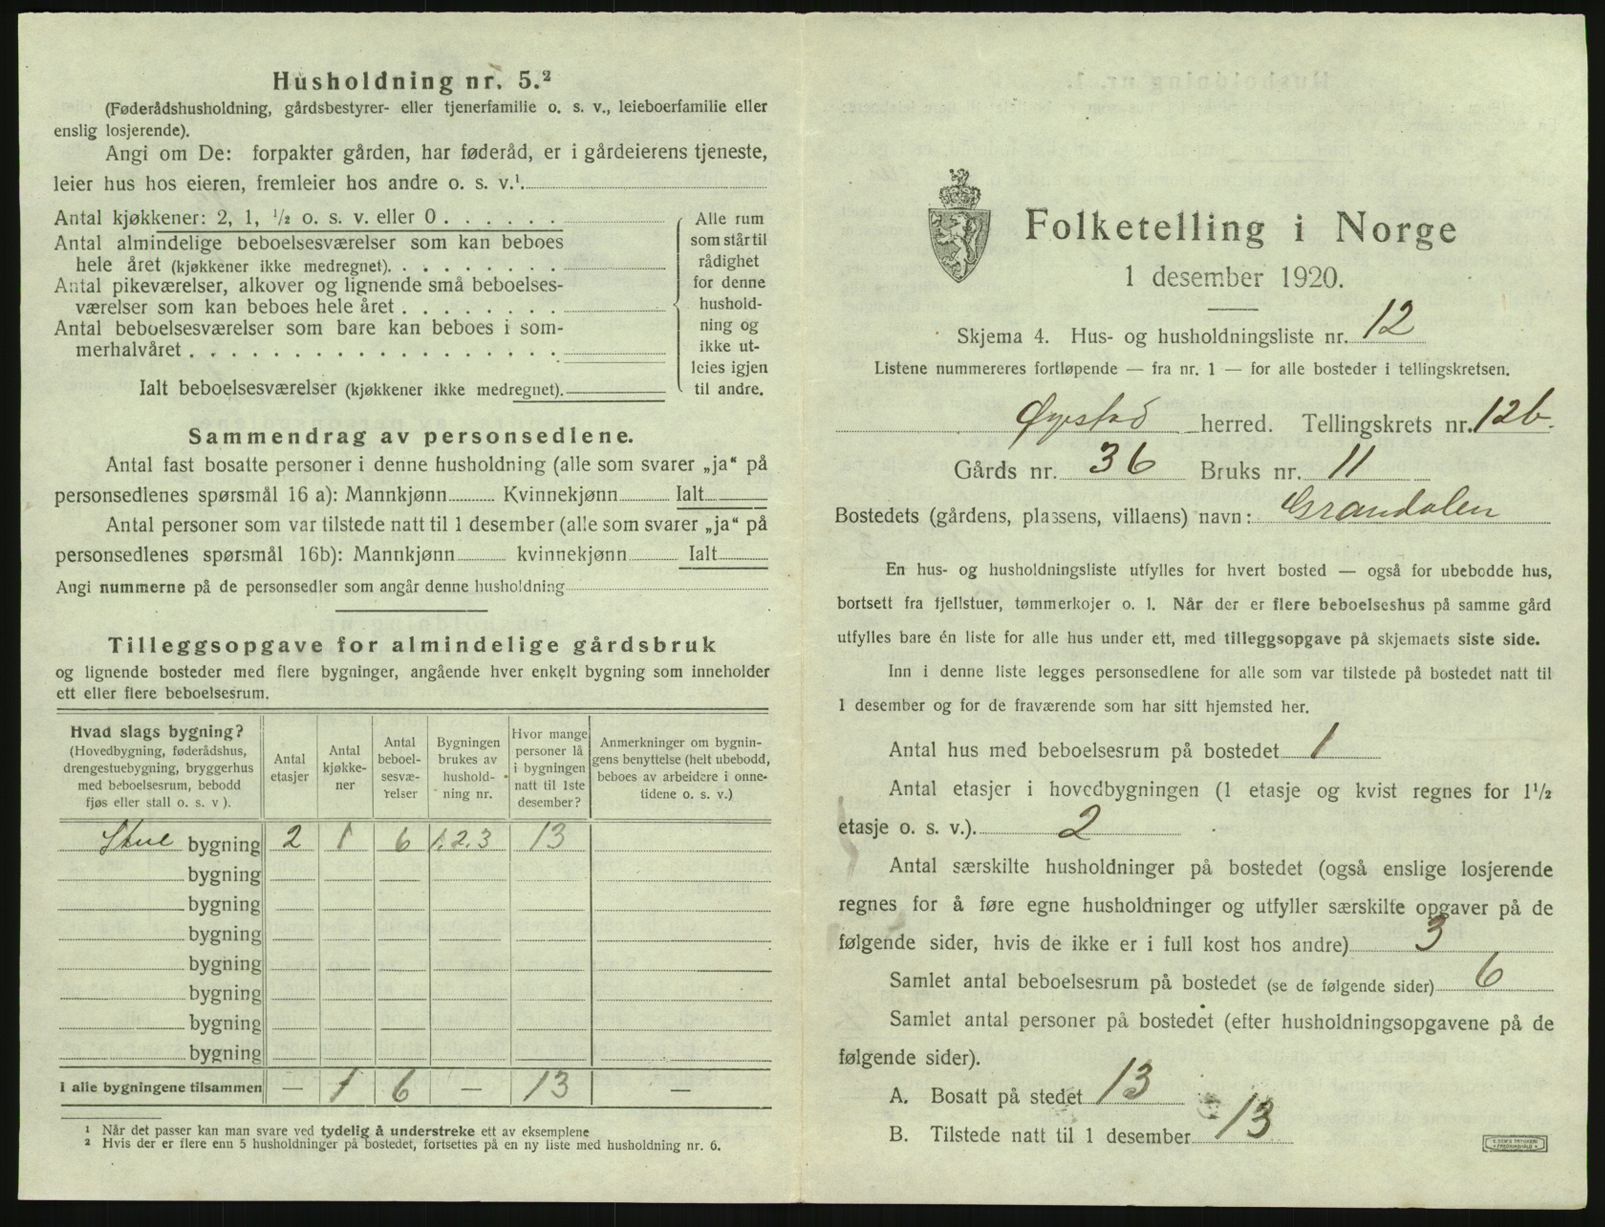 Husholdning nr. 5.²
(Føderådshusholdning, gårdsbestyrer- eller tjenerfamilie o. s. v., leieboerfamilie eller
enslig losjerende).
Angi om De: forpakter gården, har føderåd, er i gårdeierens tjeneste,
leier hus hos eieren, fremleier hos andre o. s. v.¹
Antal kjøkkener: 2, 1, ½ o. s. v. eller 0 . . . . . .
Antal almindelige beboelsesværelser som kan beboes
hele året (kjøkkener ikke medregnet). . . . . . . . .
Antal pikeværelser, alkover og lignende små beboelses-
værelser som kan beboes hele året . . . . . . . .
Antal beboelsesværelser som bare kan beboes i som-
merhalvåret . . . . . . . . . . . . . . . . . .
Ialt beboelsesværelser (kjøkkener ikke medregnet).
Alle rum
som står til
rådighet
for denne
hushold-
ning og
ikke ut-
leies igjen
til andre.
Sammendrag av personsedlene.
Antal fast bosatte personer i denne husholdning (alle som svarer „ja“ på
personsedlenes spørsmål 16 a): Mannkjønn Kvinnekjønn Ialt
Antal personer som var tilstede natt til 1 desember (alle som svarer „ja“ på
personsedlenes spørsmål 16b): Mannkjønn kvinnekjønn Ialt
Angi nummerne på de personsedler som angår denne husholdning
Tilleggsopgave for almindelige gårdsbruk
og lignende bosteder med flere bygninger, angående hver enkelt bygning som inneholder
ett eller flere beboelsesrum.
Hvad slags bygning?
(Hovedbygning, føderådshus,
drengestuebygning, bryggerhus
med beboelsesrum, bebodd
fjøs eller stall o. s. v ).
Antal
etasjer
Antal
kjøkke-
ner
Antal
beboel-
sesvæ-
relser
Bygningen
brukes av
hushold-
ning nr.
Hvor mange
personer lå
i bygningen
natt til 1ste
desember?
Anmerkninger om bygnin-
gens benyttelse (helt ubebodd,
beboes av arbeidere i onne-
tidene o. s. v.)
Stue bygning 2 1 6 1.2.3 13
bygning
bygning
bygning
bygning
bygning
bygning
bygning
I alle bygningene tilsammen — 1 6 — 13 —
¹ Når det passer kan man svare ved tydelig å understreke ett av eksemplene
² Hvis der er flere enn 5 husholdninger på bostedet, fortsettes på en ny liste med husholdning nr. 6.
Folketelling i Norge
1 desember 1920.
Skjema 4. Hus- og husholdningsliste nr. 12
Listene nummereres fortløpende — fra nr. 1 — for alle bosteder i tellingskretsen.
Øyestad herred. Tellingskrets nr. 12b.
Gårds nr. 36 Bruks nr. 11
Bostedets (gårdens, plassens, villaens) navn: Grandalen
En hus- og husholdningsliste utfylles for hvert bosted — også for ubebodde hus,
bortsett fra fjellstuer, tømmerkojer o. l. Når der er flere beboelseshus på samme gård
utfylles bare én liste for alle hus under ett, med tilleggsopgave på skjemaets siste side.
Inn i denne liste legges personsedlene for alle som var tilstede på bostedet natt til
1 desember og for de fraværende som har sitt hjemsted her.
Antal hus med beboelsesrum på bostedet 1
Antal etasjer i hovedbygningen (1 etasje og kvist regnes for 1½
etasje o. s. v.). 2
Antal særskilte husholdninger på bostedet (også enslige losjerende
regnes for å føre egne husholdninger og utfyller særskilte opgaver på de
følgende sider, hvis de ikke er i full kost hos andre) 3
Samlet antal beboelsesrum på bostedet (se de følgende sider) 6
Samlet antal personer på bostedet (efter husholdningsopgavene på de
følgende sider).
A. Bosatt på stedet 13
B. Tilstede natt til 1 desember 13